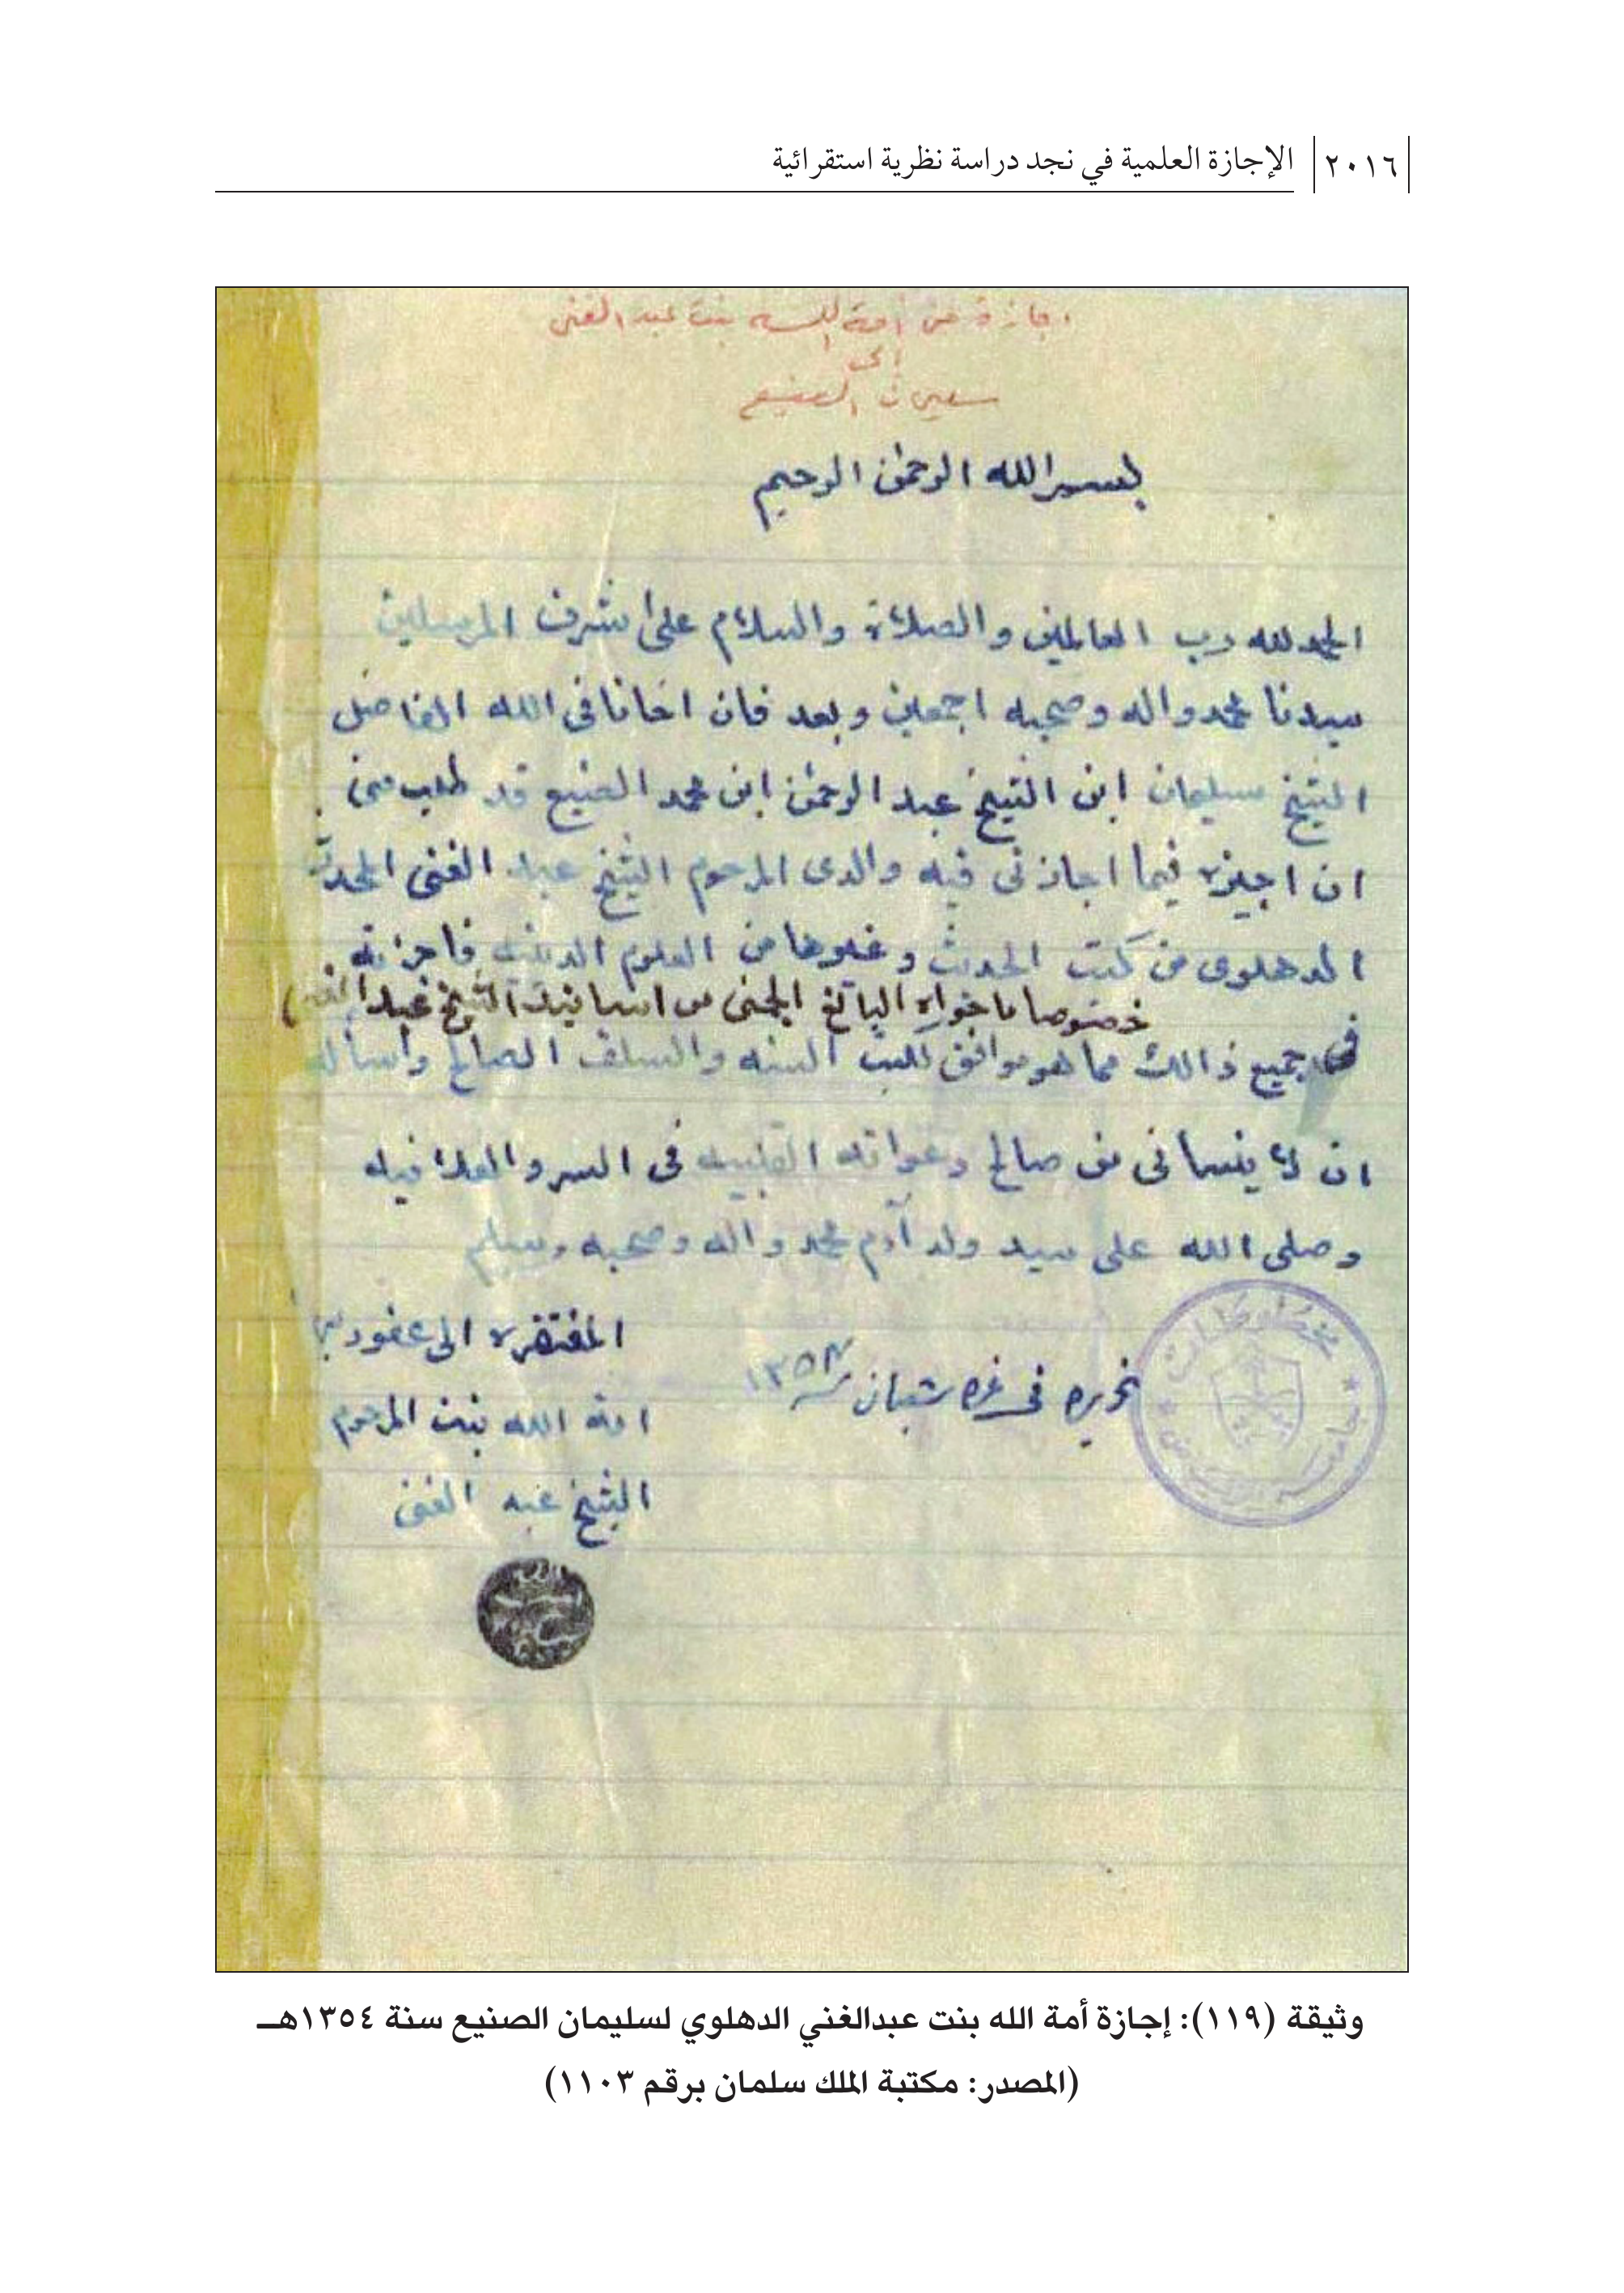 ٢٠١٦ الإجازة العلمية في نجد دراسة نظرية استقرائية
اجازة من أمة الله بنت عبد الغنى
الى
سليمان الصنيع
بسم الله الرحمن الرحيم
الحمد لله رب العالمين والصلاة والسلام على اشرف المرسلين
سيدنا محمد واله وصحبه اجمعين وبعد فان اخانا فى الله الفاضل
الشيخ سليمان ابن الشيخ عبد الرحمن ابن محمد الصنيع قد طلب منى
ان اجيزه فيما اجازنى فيه والدى المرحوم الشيخ عبد الغنى المحدث
الدهلوى من كتب الحديث وغيرها من العلوم الدينيه فاجزته
خصوصا ما حواه اليانع الجنى من اسانيد الشيخ عبد الغنى
فى جميع ذالك مما هو موافق للسنه والسلف الصالح واسأله
ان لا ينسانى من صالح دعواته القلبيه فى السر والعلانيه
وصلى الله على سيد ولد آدم محمد واله وصحبه وسلم
المفتقره الى عفو ربها
تحريره فى غره شعبان سنة ١٣٥٤
امة الله بنت المرحوم
الشيخ عبد الغنى
وثيقة (١١٩): إجازة أمة الله بنت عبدالغني الدهلوي لسليمان الصنيع سنة ١٣٥٤هـ
(المصدر: مكتبة الملك سلمان برقم ١١٠٣)